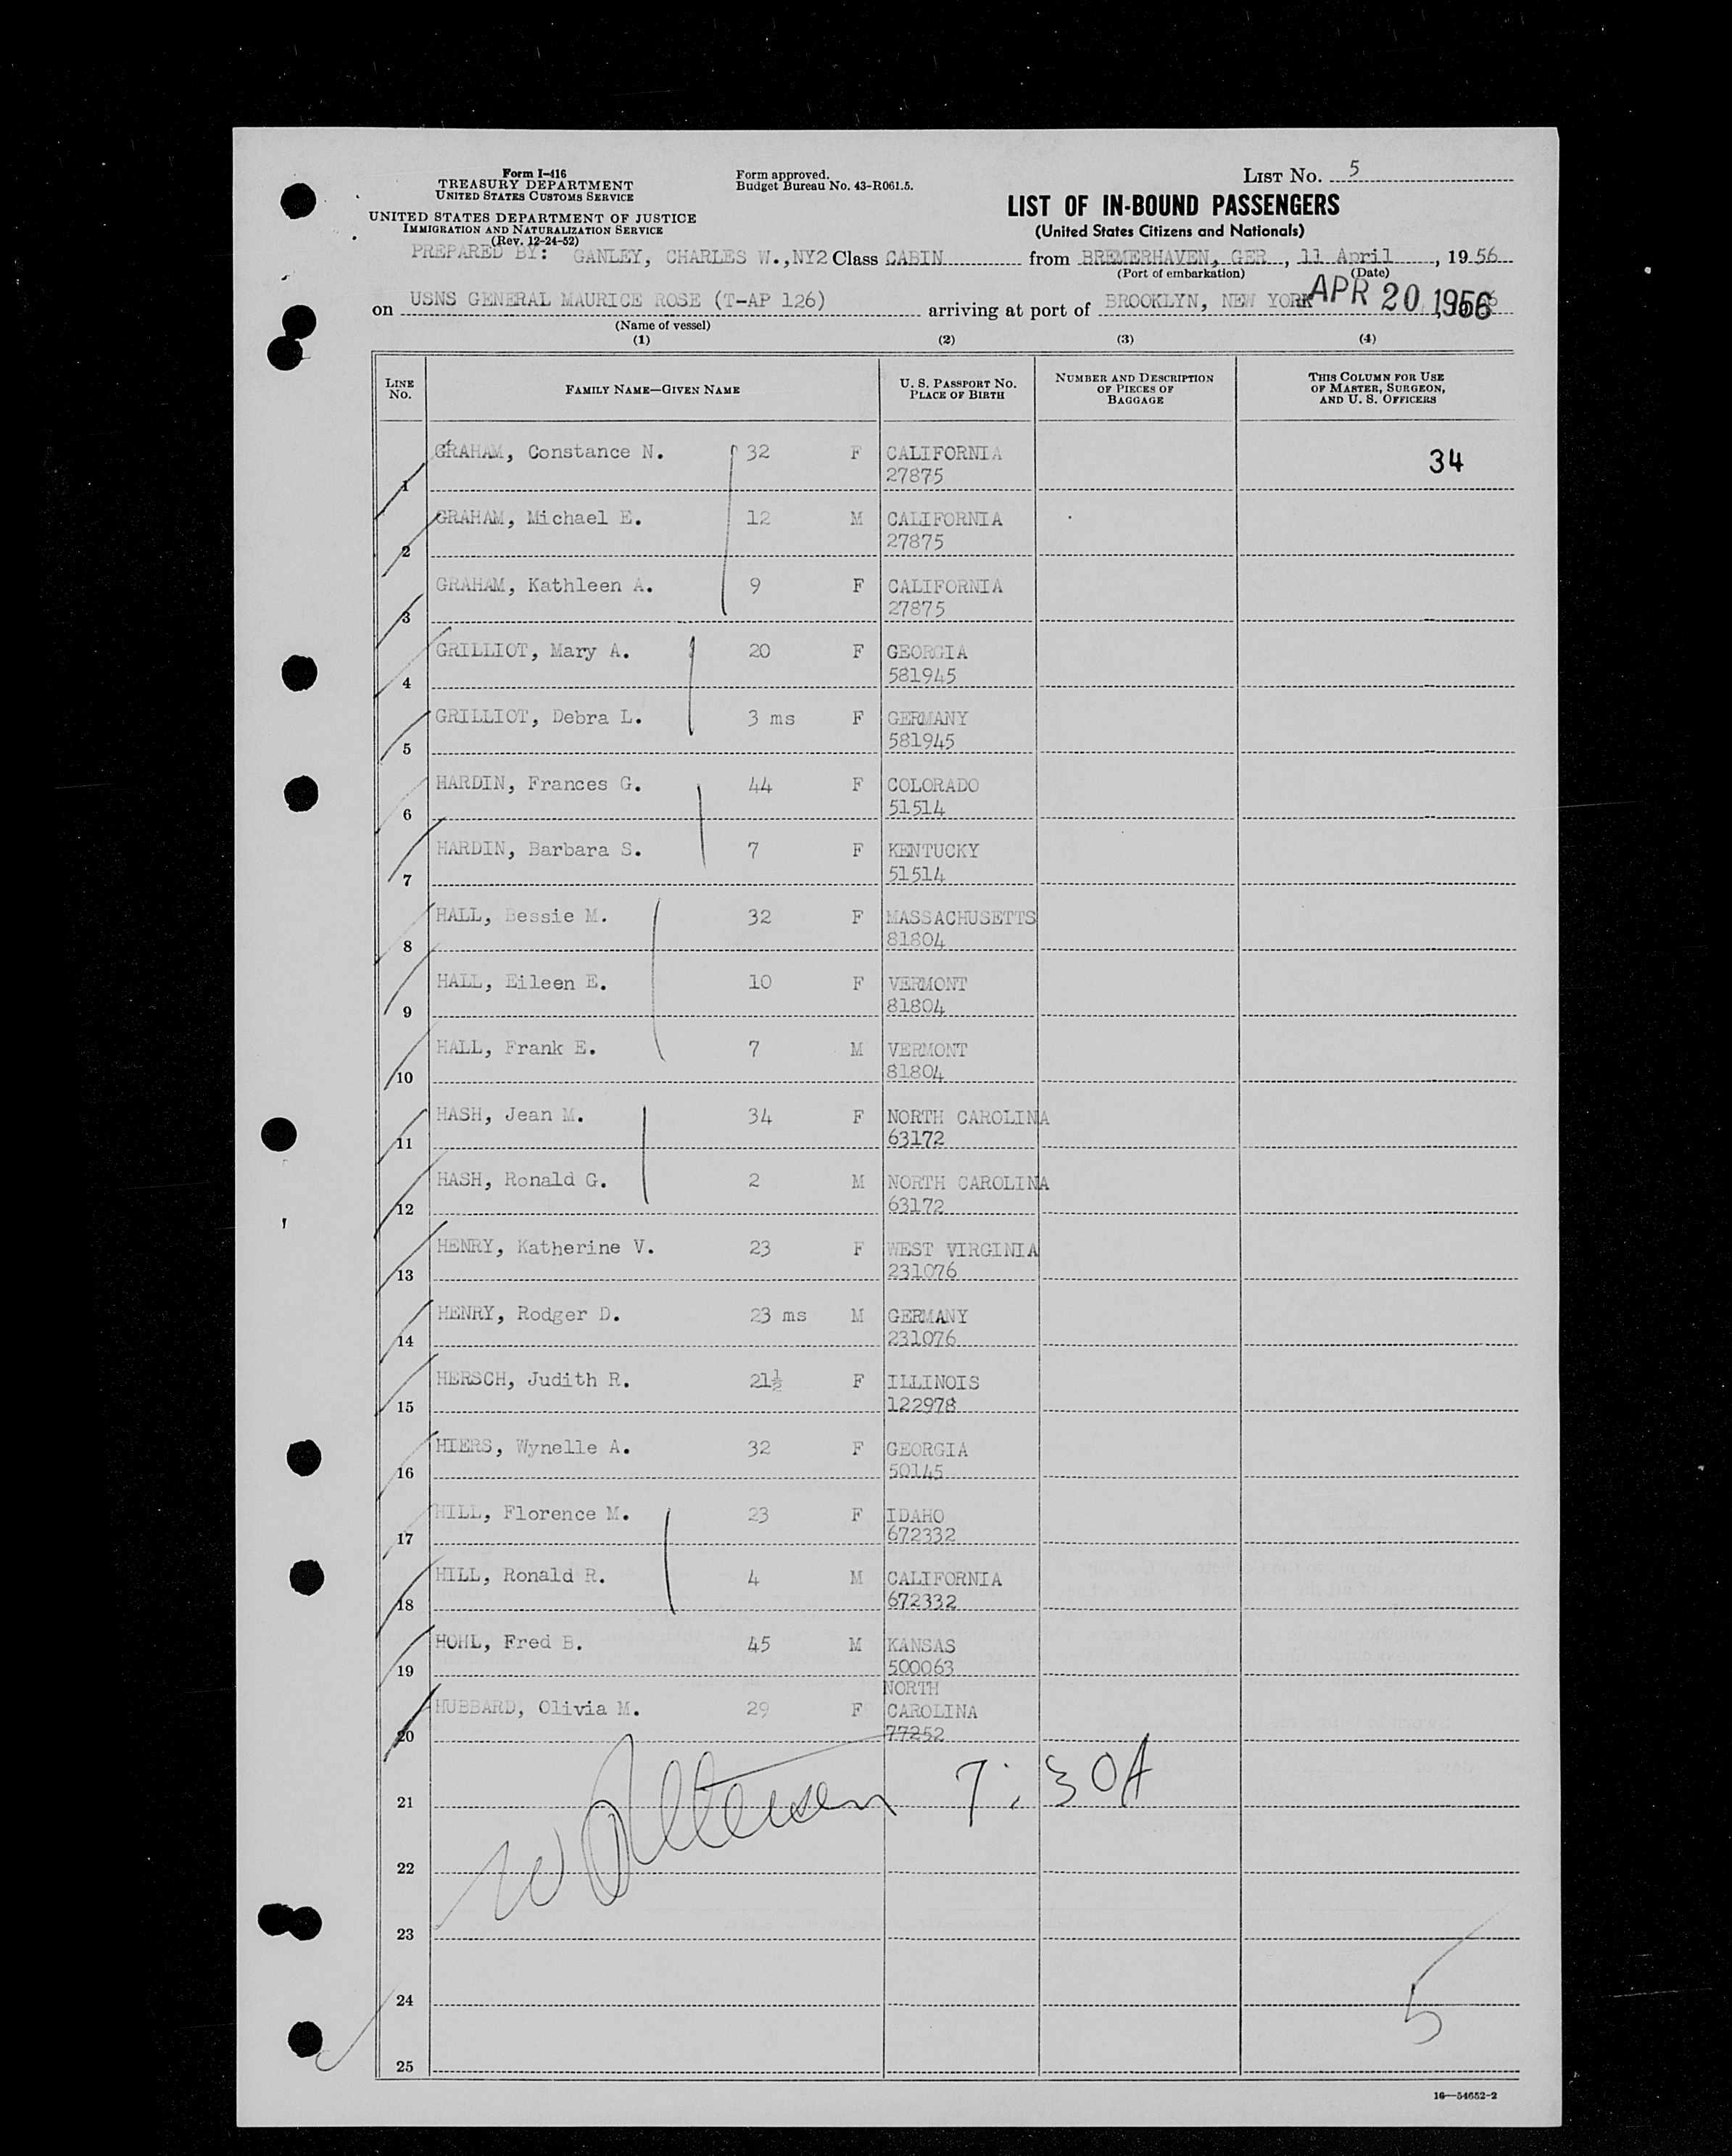 Form I-416
TREASURY DEPARTMENT
UNITED STATES CUSTOMS SERVICE
UNITED STATES DEPARTMENT OF JUSTICE
IMMIGRATION AND NATURALIZATION SERVICE
(Rev. 12-24-52)
Form approved.
Budget Bureau No. 43-R061.5.
LIST No. 5
LIST OF IN-BOUND PASSENGERS
(United States Citizens and Nationals)
PREPARED BY: GANLEY, CHARLES W., NY2 Class CABIN from BREMERHAVEN, GER , 11 April , 1956
(Port of embarkation) (Date)
on USNS GENERAL MAURICE ROSE (T-AP 126) arriving at port of BROOKLYN, NEW YORK APR 20 1956
(Name of vessel)
(1) (2) (3) (4)
LINE No. FAMILY NAME—GIVEN NAME U. S. PASSPORT No. PLACE OF BIRTH NUMBER AND DESCRIPTION OF PIECES OF BAGGAGE THIS COLUMN FOR USE OF MASTER, SURGEON, AND U. S. OFFICERS
GRAHAM, Constance N. 32 F CALIFORNIA 34
1 27875
GRAHAM, Michael E. 12 M CALIFORNIA
2 27875
GRAHAM, Kathleen A. 9 F CALIFORNIA
3 27875
GRILLIOT, Mary A. 20 F GEORGIA
4 581945
GRILLIOT, Debra L. 3 ms F GERMANY
5 581945
HARDIN, Frances G. 44 F COLORADO
6 51514
HARDIN, Barbara S. 7 F KENTUCKY
7 51514
HALL, Bessie M. 32 F MASSACHUSETTS
8 81804
HALL, Eileen E. 10 F VERMONT
9 81804
HALL, Frank E. 7 M VERMONT
10 81804
HASH, Jean M. 34 F NORTH CAROLINA
11 63172
HASH, Ronald G. 2 M NORTH CAROLINA
12 63172
HENRY, Katherine V. 23 F WEST VIRGINIA
13 231076
HENRY, Rodger D. 23 ms M GERMANY
14 231076
HERSCH, Judith R. 21½ F ILLINOIS
15 122978
HIERS, Wynelle A. 32 F GEORGIA
16 50145
HILL, Florence M. 23 F IDAHO
17 672332
HILL, Ronald R. 4 M CALIFORNIA
18 672332
HOHL, Fred B. 45 M KANSAS
19 500063
NORTH
HUBBARD, Olivia M. 29 F CAROLINA
20 77252
7:30A
21
22
23
24
5
25
16—54652-2